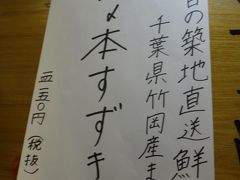 日の築地直送鮮
千葉県竹岡産ま
〆本すずき
一二五〇円(税抜)